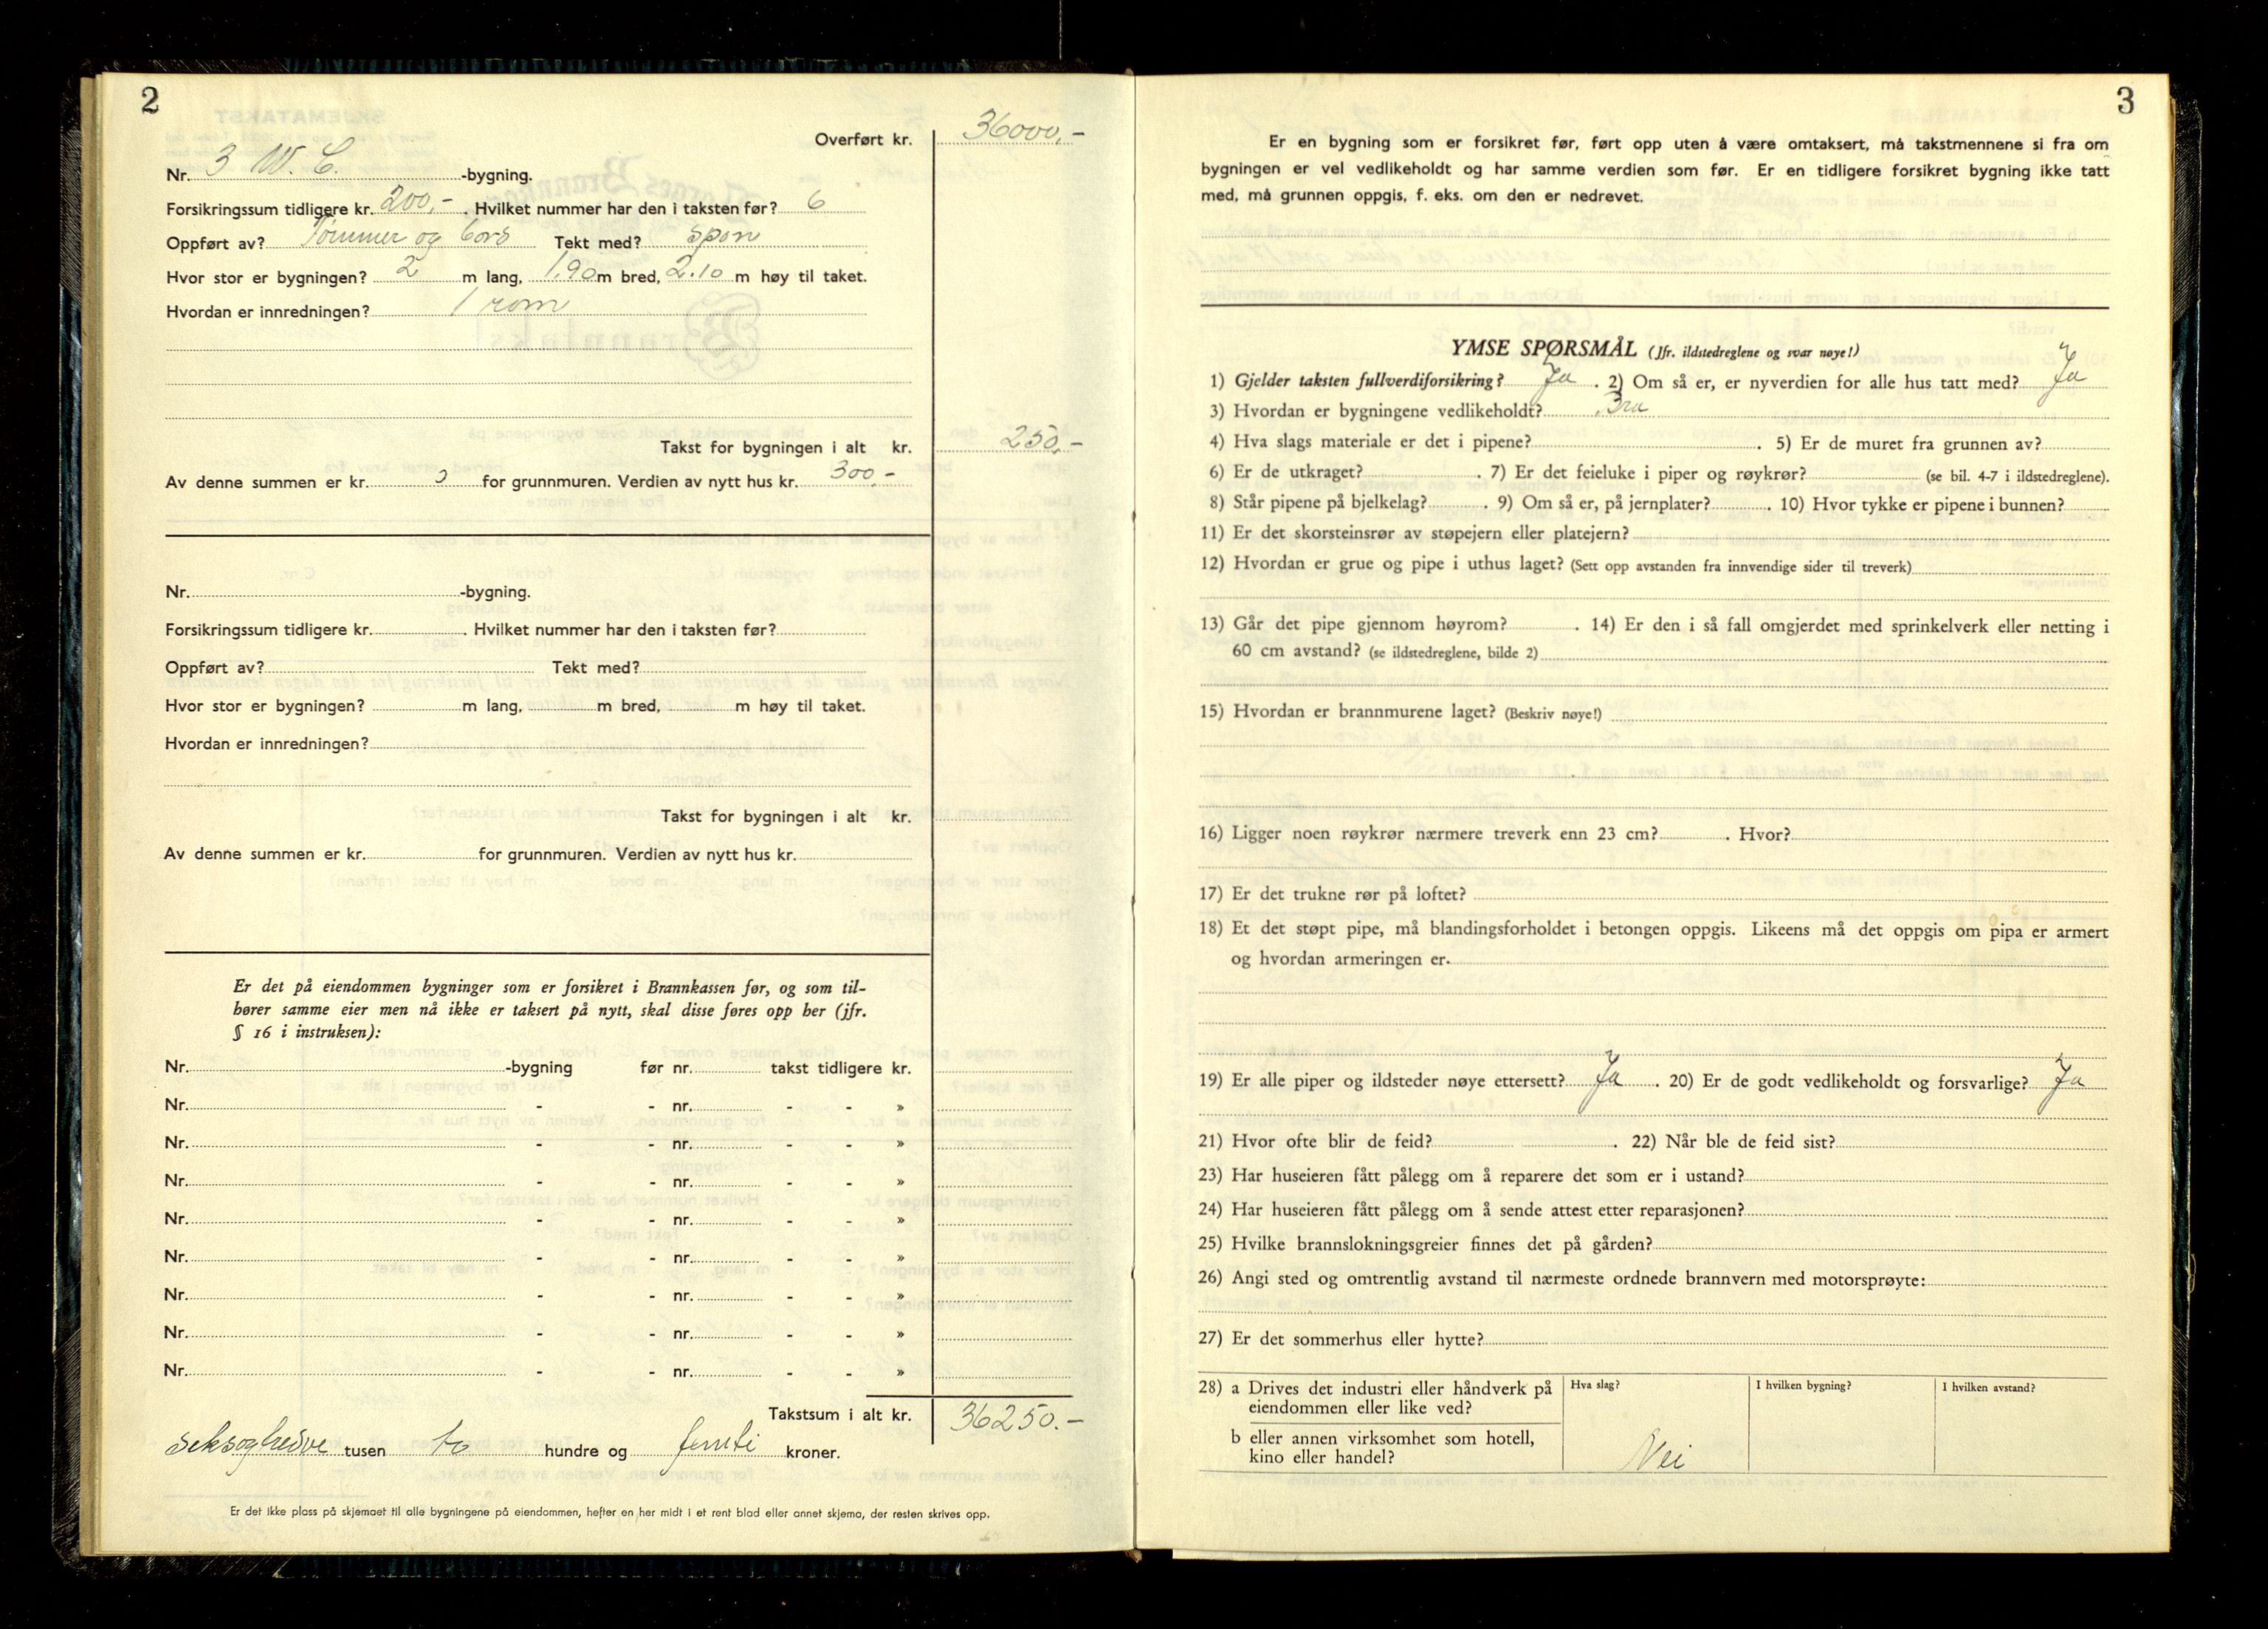 2
Overført kr. 36000,-
Nr. 3 W. C. -bygning.
Forsikringssum tidligere kr. 200,- . Hvilket nummer har den i taksten før? 6
Oppført av? Tømmer og bord Tekt med? spon
Hvor stor er bygningen? 2 m lang, 1.90 m bred, 2.10 m høy til taket.
Hvordan er innredningen? 1 rom
Takst for bygningen i alt kr. 250,-
Av denne summen er kr. for grunnmuren. Verdien av nytt hus kr. 300,-
Nr. -bygning.
Forsikringssum tidligere kr. . Hvilket nummer har den i taksten før?
Oppført av? Tekt med?
Hvor stor er bygningen? m lang, m bred, m høy til taket.
Hvordan er innredningen?
Takst for bygningen i alt kr.
Av denne summen er kr. for grunnmuren. Verdien av nytt hus kr.
Er det på eiendommen bygninger som er forsikret i Brannkassen før, og som til-
hører samme eier men nå ikke er taksert på nytt, skal disse føres opp her (jfr.
§ 16 i instruksen):
Nr. -bygning før nr. takst tidligere kr.
Nr. - - nr. - - »
Nr. - - nr. - - »
Nr. - - nr. - - »
Nr. - - nr. - - »
Nr. - - nr. - - »
Nr. - - nr. - - »
Nr. - - nr. - - »
Nr. - - nr. - - »
Takstsum i alt kr. 36250.-
seksogtredve tusen to hundre og femti kroner.
Er det ikke plass på skjemaet til alle bygningene på eiendommen, hefter en her midt i et rent blad eller annet skjema, der resten skrives opp.
3
Er en bygning som er forsikret før, ført opp uten å være omtaksert, må takstmennene si fra om
bygningen er vel vedlikeholdt og har samme verdien som før. Er en tidligere forsikret bygning ikke tatt
med, må grunnen oppgis, f. eks. om den er nedrevet.
YMSE SPØRSMÅL (Jfr. ildstedreglene og svar nøye!)
1) Gjelder taksten fullverdiforsikring? Ja . 2) Om så er, er nyverdien for alle hus tatt med? Ja
3) Hvordan er bygningene vedlikeholdt? Bra
4) Hva slags materiale er det i pipene? . 5) Er de muret fra grunnen av?
6) Er de utkraget? . 7) Er det feieluke i piper og røykrør? (se bil. 4-7 i ildstedreglene).
8) Står pipene på bjelkelag? . 9) Om så er, på jernplater? . 10) Hvor tykke er pipene i bunnen?
11) Er det skorsteinsrør av støpejern eller platejern?
12) Hvordan er grue og pipe i uthus laget? (Sett opp avstanden fra innvendige sider til treverk)
13) Går det pipe gjennom høyrom? . 14) Er den i så fall omgjerdet med sprinkelverk eller netting i
60 cm avstand? (se ildstedreglene, bilde 2)
15) Hvordan er brannmurene laget? (Beskriv nøye!)
16) Ligger noen røykrør nærmere treverk enn 23 cm? . Hvor?
17) Er det trukne rør på loftet?
18) Et det støpt pipe, må blandingsforholdet i betongen oppgis. Likeens må det oppgis om pipa er armert
og hvordan armeringen er.
19) Er alle piper og ildsteder nøye ettersett? Ja . 20) Er de godt vedlikeholdt og forsvarlige? Ja
21) Hvor ofte blir de feid? . 22) Når ble de feid sist?
23) Har huseieren fått pålegg om å reparere det som er i ustand?
24) Har huseieren fått pålegg om å sende attest etter reparasjonen?
25) Hvilke brannslokningsgreier finnes det på gården?
26) Angi sted og omtrentlig avstand til nærmeste ordnede brannvern med motorsprøyte:
27) Er det sommerhus eller hytte?
28) a Drives det industri eller håndverk på Hva slag? I hvilken bygning? I hvilken avstand?
eiendommen eller like ved?
b eller annen virksomhet som hotell,
kino eller handel? Nei